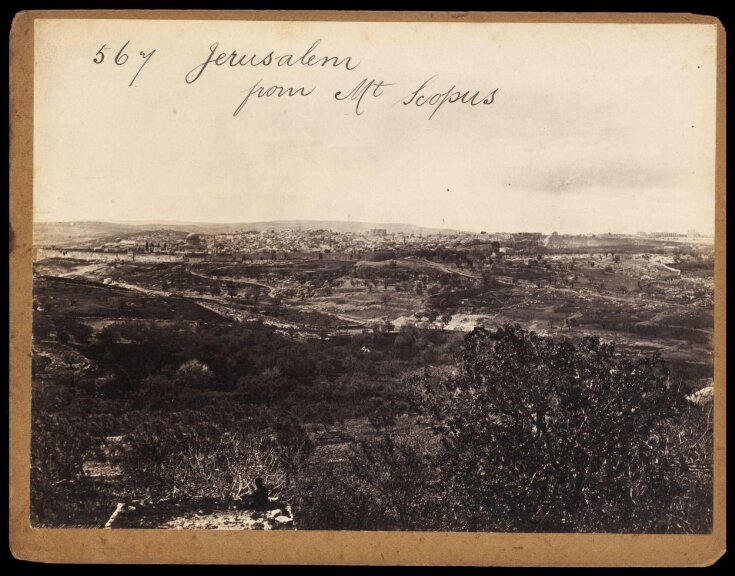 567 Jerusalem
from Mt Scopus